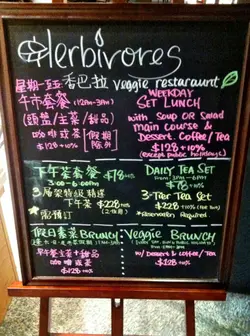 Herbivores
星期一至五 香巴拉 veggie restaurant
午市套餐 (12PM-3PM)
(頭盤/主菜/甜品)
咖啡或茶 [假期除外]
$128+10%
WEEKDAY
SET LUNCH
with SOUP OR SALAD
main course &
Dessert. Coffee/Tea
$128+10%
(except public holidays)
下午茶套餐 $78 +10%
3:00-6:00PM
3層架特級精選
下午茶 $228 +10%
(2位用)
需預訂
DAILY TEA SET
FROM 3PM-6PM
$78 +10%
3-Tier Tea Set
$228 +10% (for two)
*Reservation Required
假日素菜BRUNCH
早午餐主菜+甜品
咖啡或茶
$128 +10%
Veggie BRUNCH
w/ Dessert & coffee/Tea
$128 +10%